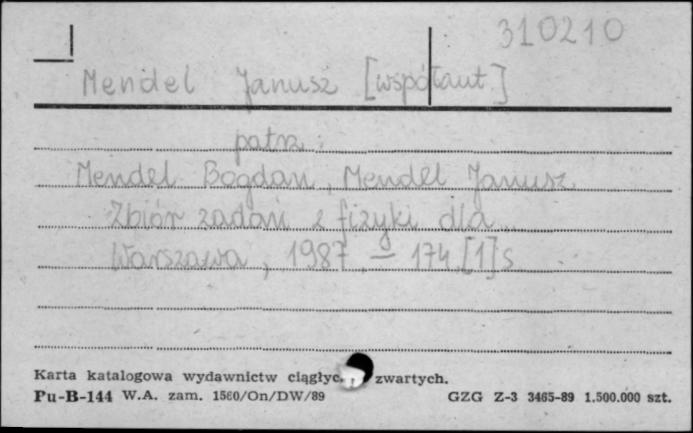 310210
Mendel Janusz [współaut.]
patrz:
Mendel Bogdan, Mendel Janusz
Zbiór zadań z fizyki dla...
Warszawa, 1987. - 174,[1]s.
Karta katalogowa wydawnictw ciągłyc zwartych.
Pu-B-144 W.A. zam. 1560/On/DW/89 GZG Z-3 3465-89 1.500.000 szt.